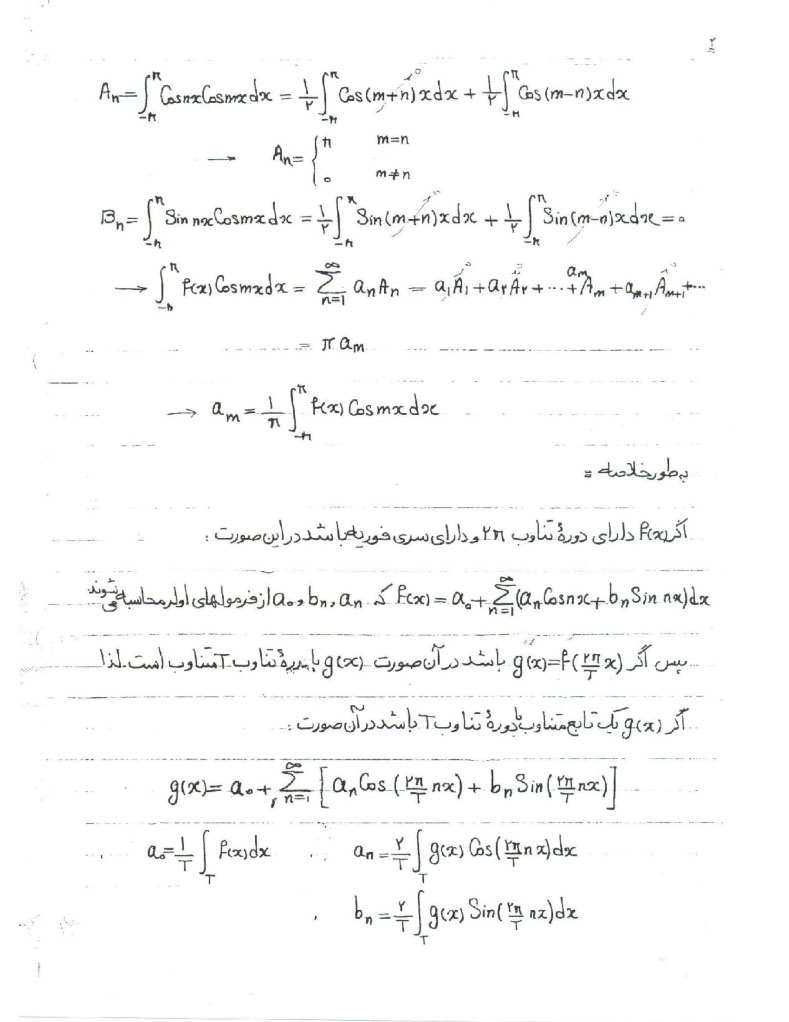 ۲
Aₙ = ∫_{-π}^{π} Cosnx Cosmx dx = ۱/۲ ∫_{-π}^{π} Cos(m+n)x dx + ۱/۲ ∫_{-π}^{π} Cos(m-n)x dx
→ Aₙ = { π m=n
۰ m≠n
Bₙ = ∫_{-π}^{π} Sin nx Cosmx dx = ۱/۲ ∫_{-π}^{π} Sin(m+n)x dx + ۱/۲ ∫_{-π}^{π} Sin(m-n)x dx = ۰
→ ∫_{-π}^{π} f(x) Cosmx dx = Σ_{n=1}^{∞} aₙAₙ = a₁A₁ + a۲A۲ + ... + a_m A_m + a_{m+1} A_{m+1} + ...
= π a_m
→ a_m = 1/π ∫_{-π}^{π} f(x) Cosmx dx
بطور خلاصه =
اگر f(x) دارای دورهٔ تناوب ۲π و دارای سری فوریه باشد در این صورت :
f(x) = a₀ + Σ_{n=1}^{∞} (aₙ Cosnx + bₙ Sin nx)dx که aₙ , bₙ , a₀ از فرمولهای اولر محاسبه می شوند
پس اگر g(x) = f(۲π/T x) باشد در آن صورت g(x) با دورهٔ تناوب T متناوب است. لذا
اگر g(x) یک تابع متناوب با دورهٔ تناوب T باشد در آن صورت :
g(x) = a₀ + Σ_{n=1}^{∞} [aₙ Cos(۲π/T nx) + bₙ Sin(۲π/T nx)]
a₀ = 1/T ∫_T f(x)dx , aₙ = ۲/T ∫_T g(x) Cos(۲π/T nx)dx
, bₙ = ۲/T ∫_T g(x) Sin(۲π/T nx)dx